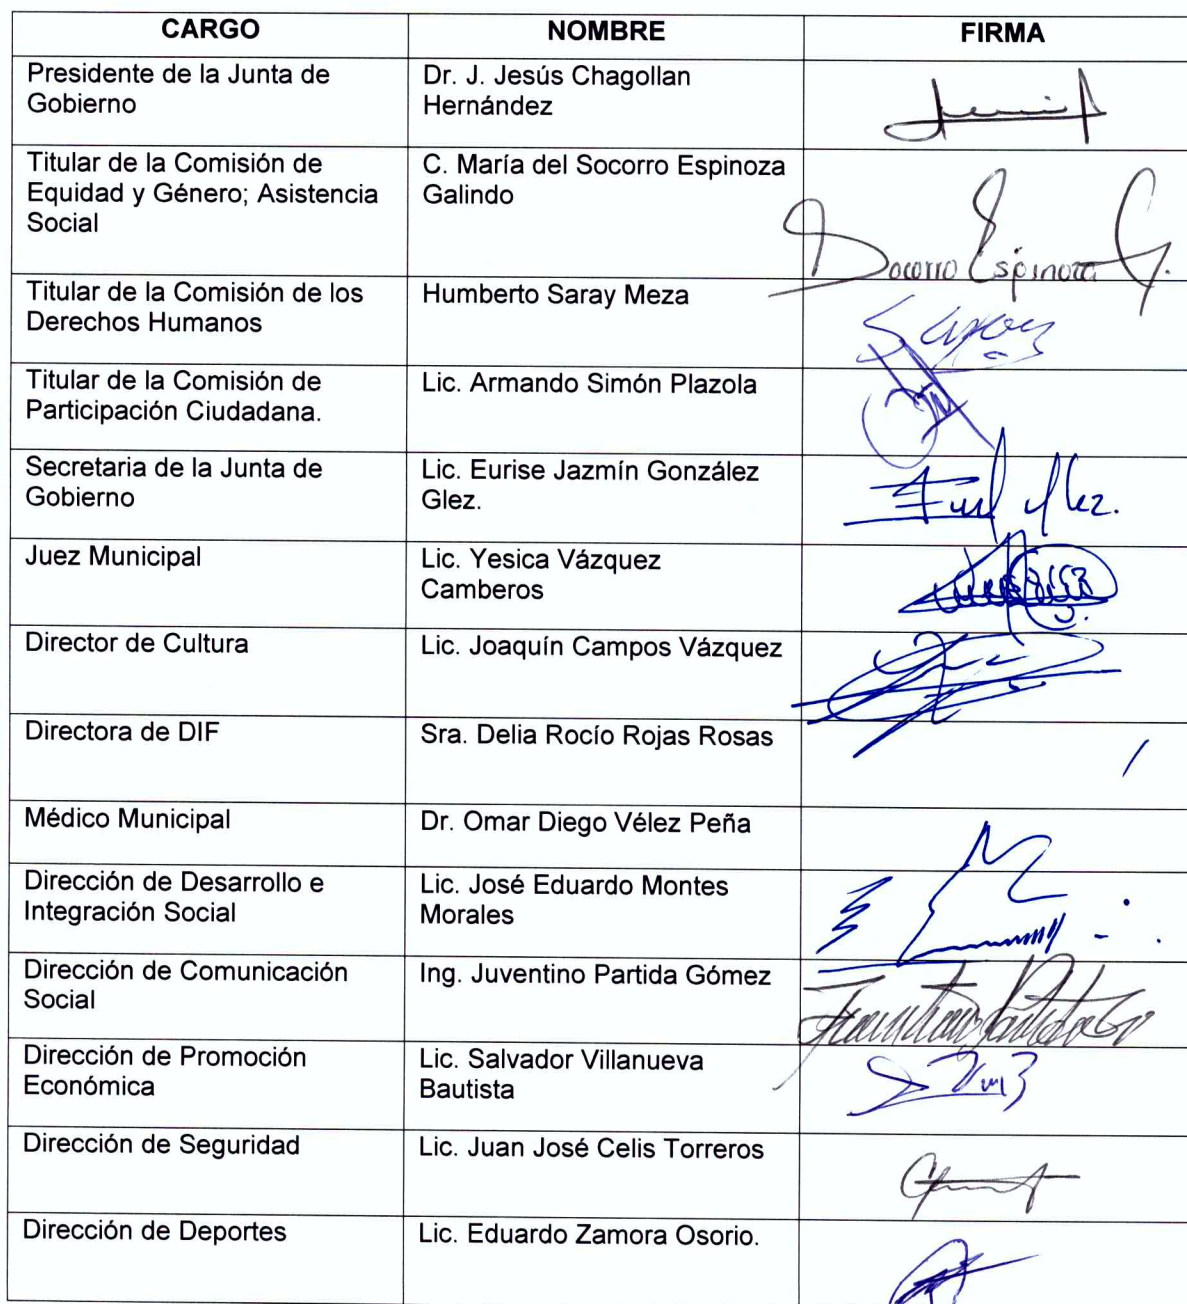 CARGO NOMBRE FIRMA
Presidente de la Junta de Gobierno
Dr. J. Jesús Chagollan Hernández
Titular de la Comisión de Equidad y Género; Asistencia Social
C. María del Socorro Espinoza Galindo
Socorro Espinoza G.
Titular de la Comisión de los Derechos Humanos
Humberto Saray Meza
Saray
Titular de la Comisión de Participación Ciudadana.
Lic. Armando Simón Plazola
Secretaria de la Junta de Gobierno
Lic. Eurise Jazmín González Glez.
Juez Municipal
Lic. Yesica Vázquez Camberos
Director de Cultura
Lic. Joaquín Campos Vázquez
Directora de DIF
Sra. Delia Rocío Rojas Rosas
Médico Municipal
Dr. Omar Diego Vélez Peña
Dirección de Desarrollo e Integración Social
Lic. José Eduardo Montes Morales
Dirección de Comunicación Social
Ing. Juventino Partida Gómez
Dirección de Promoción Económica
Lic. Salvador Villanueva Bautista
Dirección de Seguridad
Lic. Juan José Celis Torreros
Dirección de Deportes
Lic. Eduardo Zamora Osorio.